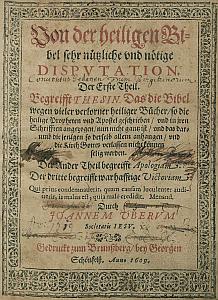 Von der heiligen Bi-
bel sehr nützliche und nötige
DISPVTATION.
Der Erste Theil.
Begreifft THESIN. Das die Bibel
wegen vieler verlorner heiliger Bücher, so die
heilige Propheten und Apostel geschrieben, und in jren
Schrifften angezogen, nun nicht gantz ist, und das dar-
und die jenigen so derselb allein anhangen, und
die Kirch Gottes verlassen nicht können
selig werden.
Der Ander Theil begreifft Apologiam.
Der dritte begreifft warhafftige Victoriam.
Qui prius condemnauerit, quam causam loquenter audi-
uerit, is malus est, quia male credidit. Menand.
Durch
IOANNEM VBERVM
Societatis IESV.
Gedruckt zum Brunsberg, bey Georgen
Schönfelß, Anno 1609.